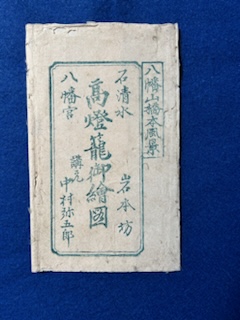 八幡山橋本風景
石清水
八幡宮
高燈籠御繪圖
岩本坊
講元
中村弥五郎